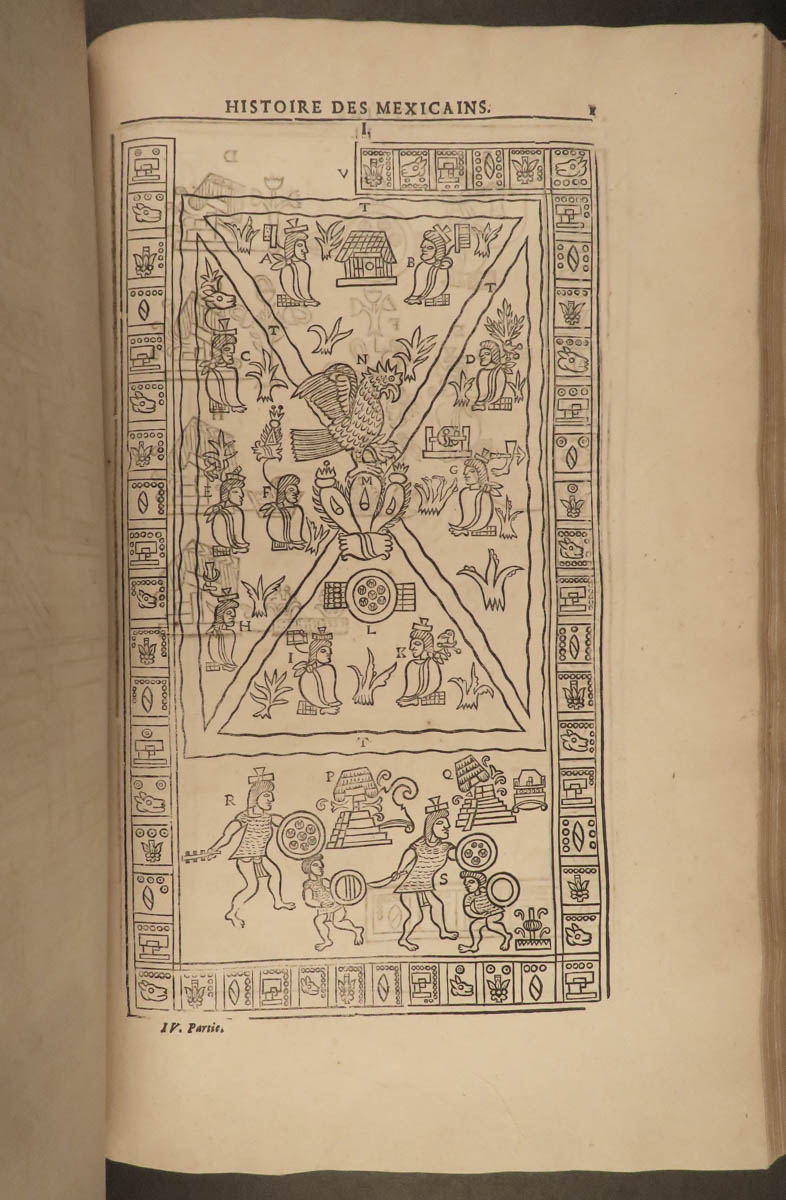 HISTOIRE DES MEXICAINS.
I.
V
T
A
B
T
T
C
N
D
E
F
M
G
H
L
I
K
T
R
P
Q
S
IV. Partie.